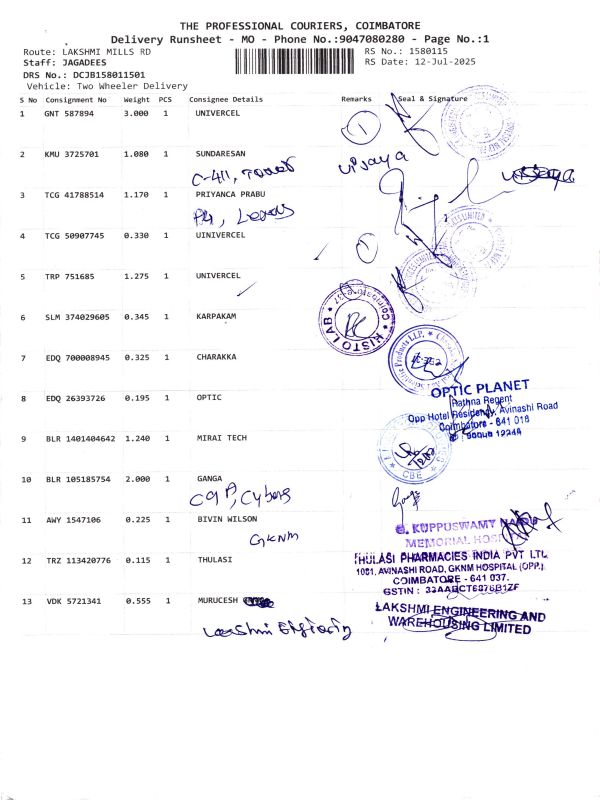 THE PROFESSIONAL COURIERS, COIMBATORE
Delivery Runsheet - MO - Phone No.:9047080280 - Page No.:1
Route: LAKSHMI MILLS RD RS No.: 1580115
Staff: JAGADEES RS Date: 12-Jul-2025
DRS No.: DCJB158011501
Vehicle: Two Wheeler Delivery
S No Consignment No Weight PCS Consignee Details Remarks Seal & Signature
1 GNT 587894 3.000 1 UNIVERCEL 1
2 KMU 3725701 1.080 1 SUNDARESAN vijaya
C-411, Tower
3 TCG 41788514 1.170 1 PRIYANCA PRABU
4 TCG 50907745 0.330 1 UINIVERCEL 1
5 TRP 751685 1.275 1 UNIVERCEL
6 SLM 374029605 0.345 1 KARPAKAM HISTO LAB
7 EDQ 700008945 0.325 1 CHARAKKA
8 EDQ 26393726 0.195 1 OPTIC OPTIC PLANET
Rathna Regent
Opp Hotel Residency, Avinashi Road
Coimbatore - 641 018
9 BLR 1401404642 1.240 1 MIRAI TECH CBE
10 BLR 105185754 2.000 1 GANGA
11 AWY 1547106 0.225 1 BIVIN WILSON G. KUPPUSWAMY
GKNM MEMORIAL
12 TRZ 113420776 0.115 1 THULASI THULASI PHARMACIES INDIA PVT LTD.
1081, AVINASHI ROAD, GKNM HOSPITAL (OPP.)
COIMBATORE - 641 037.
GSTIN : 33AABCT6076B1ZF
13 VDK 5721341 0.555 1 MURUCESH LAKSHMI ENGINEERING AND
WAREHOUSING LIMITED